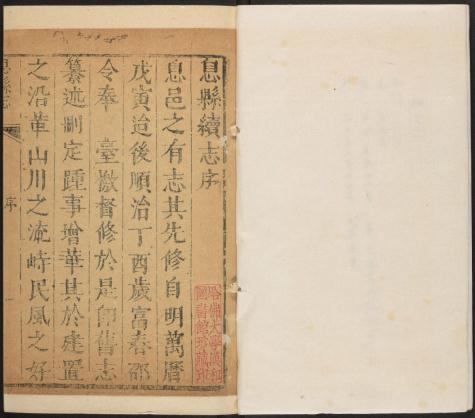 息縣續志序
息邑之有志其先修自明萬曆
戊寅迨後順治丁酉歲富春邵
令奉　臺檄督修於是即舊志
纂述刪定踵事增華其於建置
之沿革山川之流峙民風之好
息縣志
序
哈佛大學漢和
圖書館珍藏印